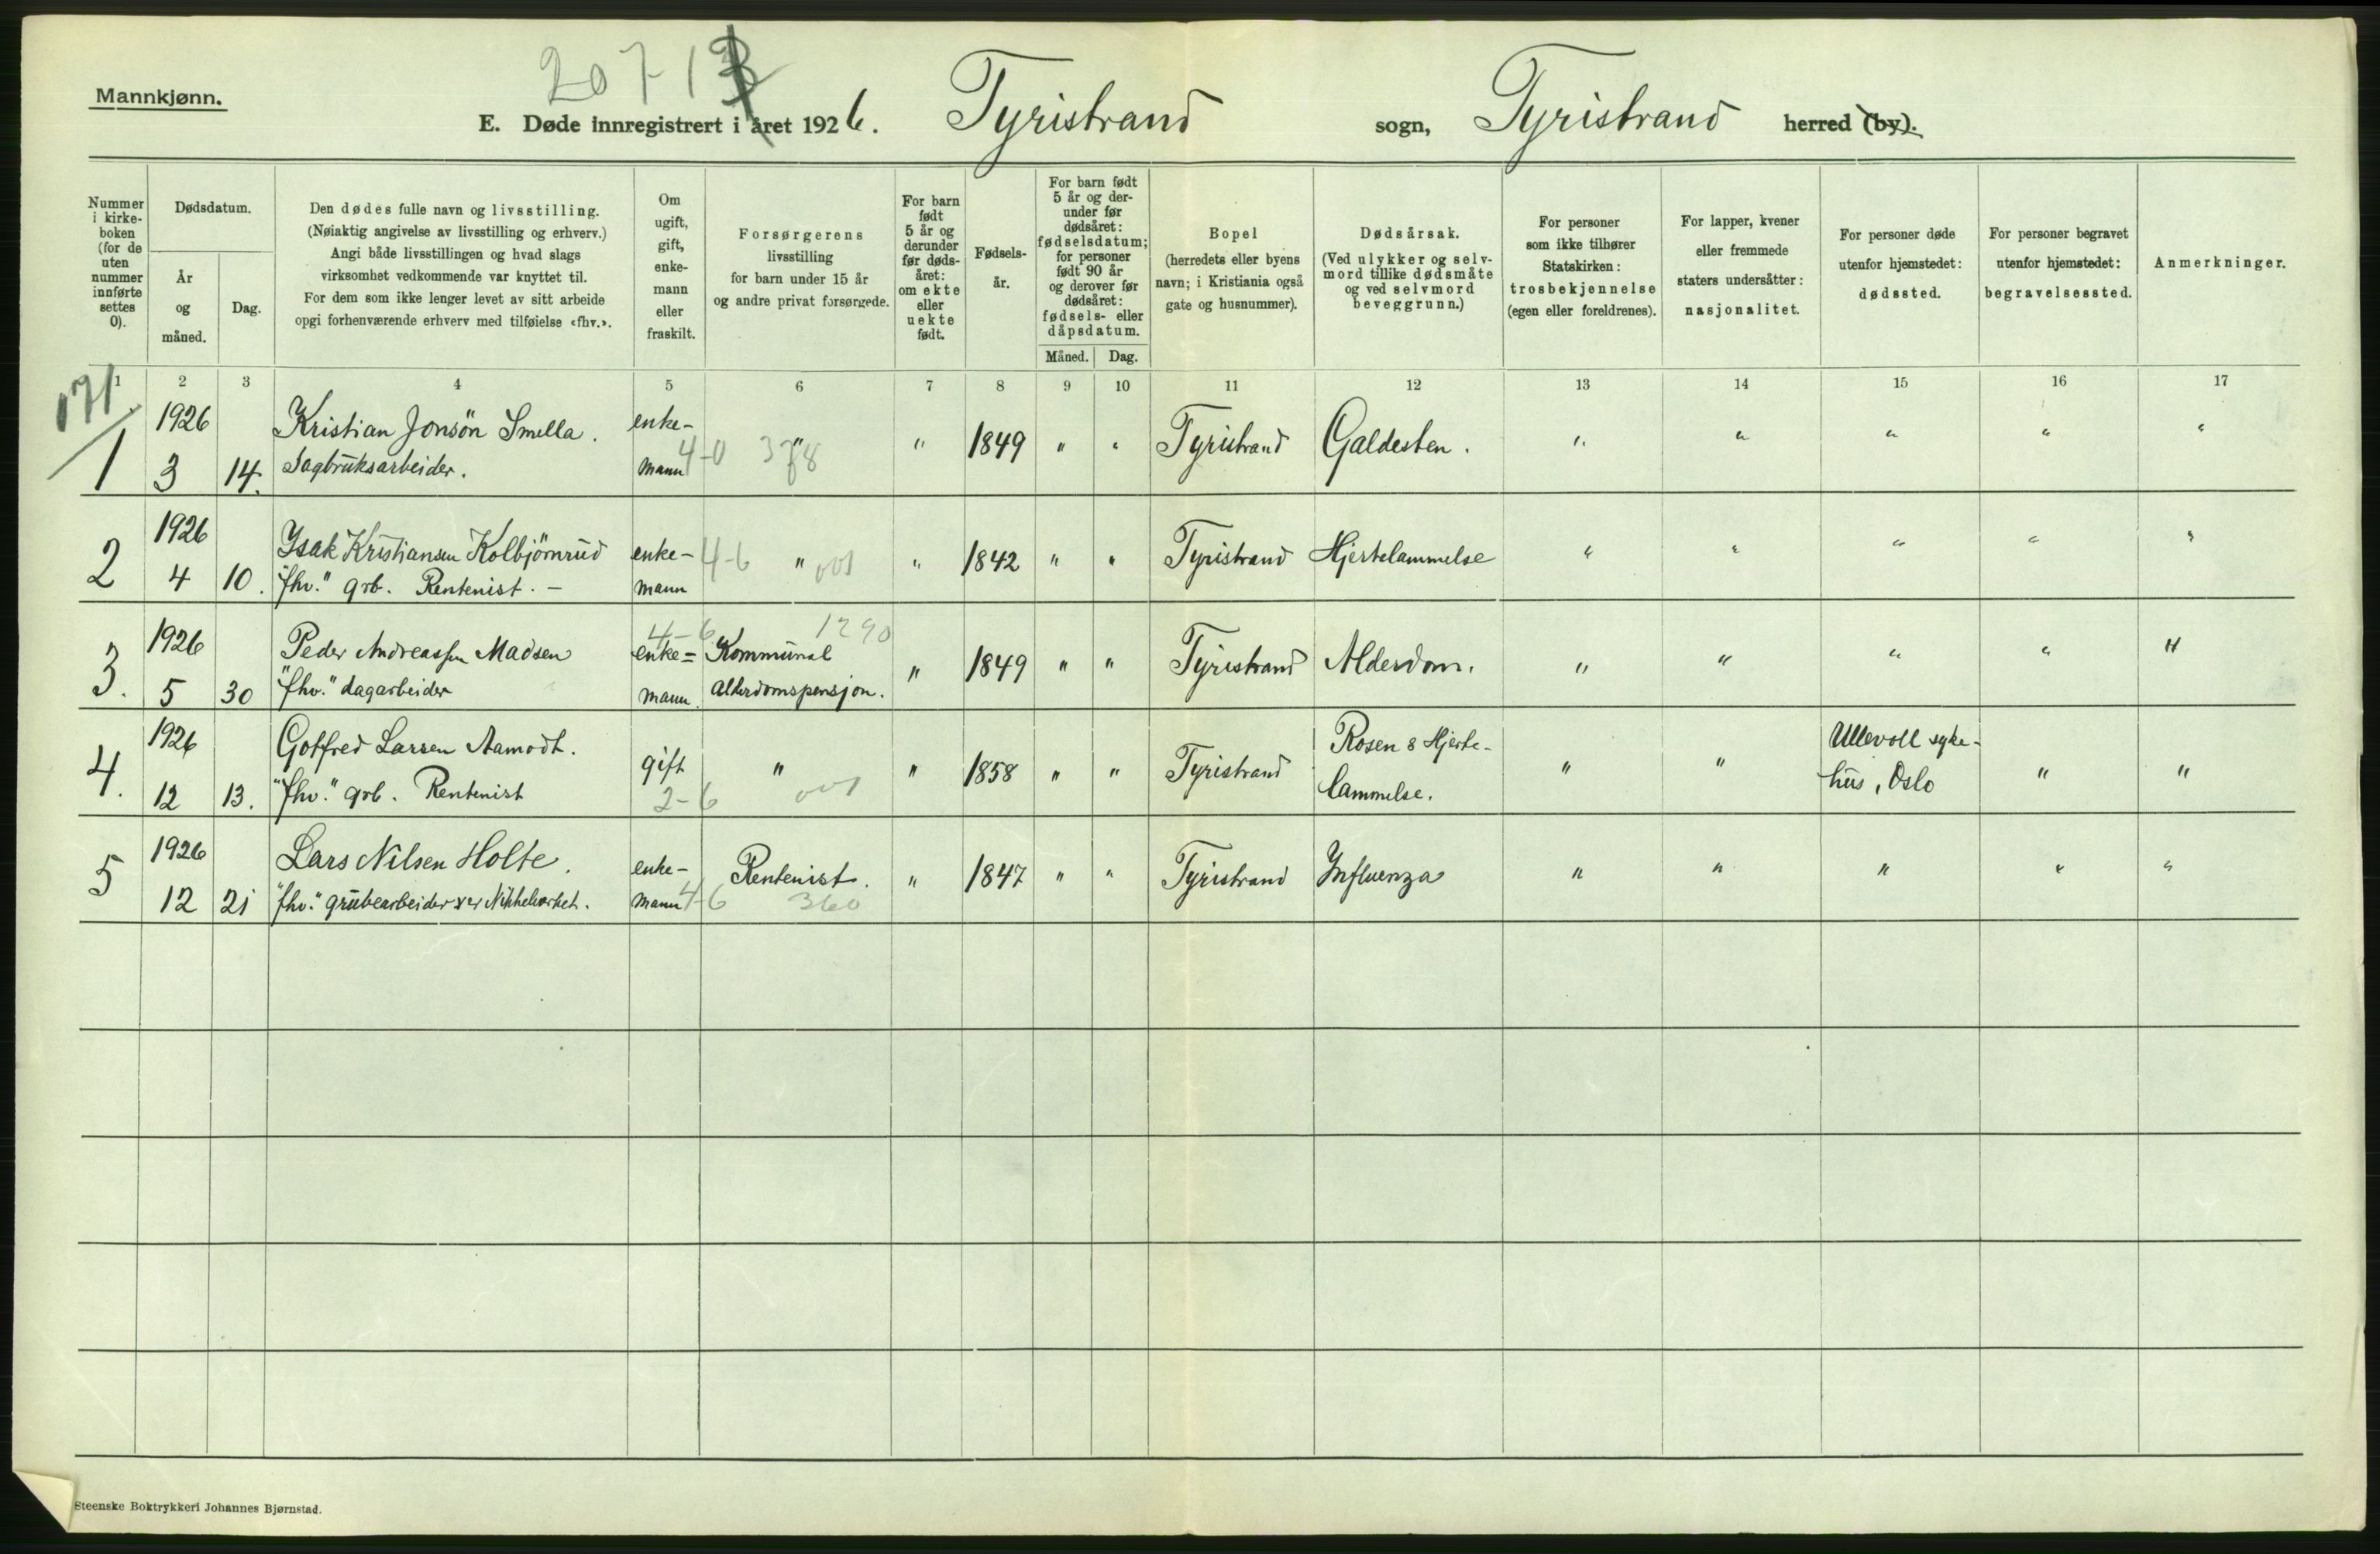 Mannkjønn.
E. Døde innregistrert i året 1926. Tyristrand sogn, Tyristrand herred (by).
Nummer i kirke-boken (for de uten nummer innførte settes 0).
Dødsdatum.
År og måned.
Dag.
Den dødes fulle navn og livsstilling.
(Nøiaktig angivelse av livsstilling og erhverv.)
Angi både livsstillingen og hvad slags
virksomhet vedkommende var knyttet til.
For dem som ikke lenger levet av sitt arbeide
opgi forhenværende erhverv med tilføielse «fhv.».
Om ugift, gift, enke-mann eller fraskilt.
Forsørgerens
livsstilling
for barn under 15 år
og andre privat forsørgede.
For barn født 5 år og derunder før døds-året: om ekte eller uekte født.
Fødsels-år.
For barn født 5 år og der-under før dødsåret: fødselsdatum; for personer født 90 år og derover før dødsåret: fødsels- eller dåpsdatum.
Måned. Dag.
Bopel
(herredets eller byens
navn; i Kristiania også
gate og husnummer).
Dødsårsak.
(Ved ulykker og selv-
mord tillike dødsmåte
og ved selvmord
beveggrunn.)
For personer
som ikke tilhører
Statskirken:
trosbekjennelse
(egen eller foreldrenes).
For lapper, kvener
eller fremmede
staters undersåtter:
nasjonalitet.
For personer døde
utenfor hjemstedet:
dødssted.
For personer begravet
utenfor hjemstedet:
begravelsessted.
Anmerkninger.
1 2 3 4 5 6 7 8 9 10 11 12 13 14 15 16 17
171
1926 Kristian Jonsön Smella. enke- " " 1849 " " Tyristrand Galdesten. " " " " "
1 3 14. Sagbruksarbeider. mann 4-0 378
1926 Ysak Kristiansen Kolbjörnrud enke- 4-6 " 001 " 1842 " " Tyristrand Hjertelammelse " " " " "
2 4 10. "fhv." grb. Rentenist. — mann
4-6 1290
1926 Peder Andreassen Madsen enke= Kommunal " 1849 " " Tyristrand Alderdom. " " " " "
3. 5 30 "fhv." dagarbeider mann. Alderdomspensjon.
1926 Gotfred Larsen Aamodt. gift " " 1858 " " Tyristrand Rosen & Hjerte- " " Ullevoll syke- " "
4. 12 13. "fhv." grb. Rentenist 2-6 001 lammelse. hus, Oslo
1926 Lars Nilsen Holte. enke- Rentenist. " 1847 " " Tyristrand Influenza " " " " "
5 12 21 "fhv." grubearbeider ved Nikkelverket. mann 4-6 360
Steenske Boktrykkeri Johannes Bjørnstad.